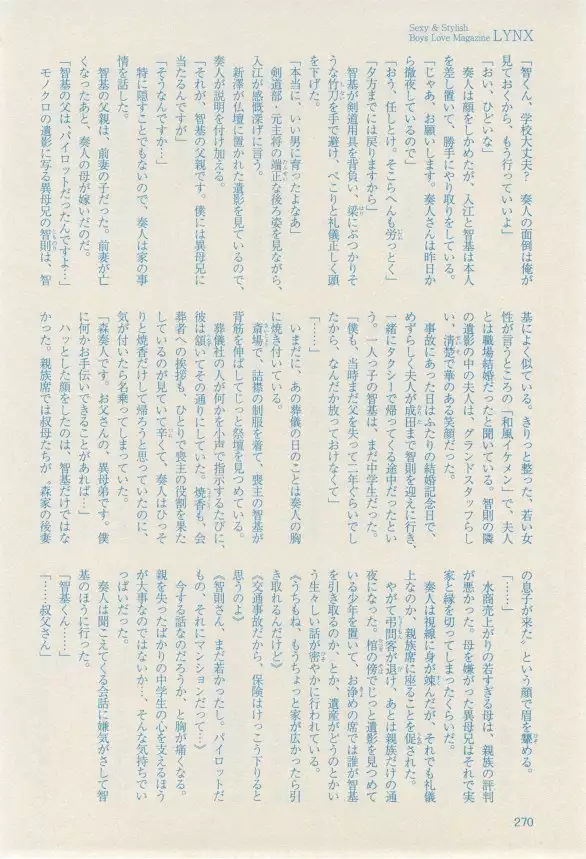 Sexy & Stylish
Boys Love Magazine LYNX
「智くん、学校大丈夫? 奏人の面倒は俺が
見ておくから、もう行っていいよ」
「おい、ひどいな」
奏人は顔をしかめたが、入江と智基は本人
を差し置いて、勝手にやり取りをしている。
「じゃあ、お願いします。奏人さんは昨日か
ら徹夜しているので」
「おう、任しとけ。そこらへんも労っとく」
「夕方までには戻りますから」
智基が剣道用具を背負い、梁にぶつかりそ
うな竹刀を手で避け、ぺこりと礼儀正しく頭
を下げた。
「本当に、いい男に育ったよなあ」
剣道部・元主将の端正な後ろ姿を見ながら、
入江が感慨深げに言う。
新澤が仏壇に置かれた遺影を見ているので、
奏人が説明を付け加える。
「それが、智基の父親です。僕には異母兄に
当たるんですが」
「そうなんですか…」
特に隠すことでもないので、奏人は家の事
情を話した。
智基の父親は、前妻の子だった。前妻が亡
くなったあと、奏人の母が嫁いだのだ。
「智基の父は、パイロットだったんですよ…」
モノクロの遺影に写る異母兄の智則は、智
基によく似ている。きりっと整った、若い女
性が言うところの「和風イケメン」で、夫人
とは職場結婚だったと聞いている。智則の隣
の遺影の中の夫人は、グランドスタッフらし
い、清楚で華のある笑顔だった。
事故にあった日はふたりの結婚記念日で、
めずらしく夫人が成田まで智則を迎えに行き、
一緒にタクシーで帰ってくる途中だったとい
う。一人っ子の智基は、まだ中学生だった。
「僕も、当時まだ父を失って二年ぐらいでし
たから、なんだか放っておけなくて」
「……」
いまだに、あの葬儀の日のことは奏人の胸
に焼き付いている。
斎場で、詰襟の制服を着て、喪主の智基が
背筋を伸ばしてじっと祭壇を見つめている。
葬儀社の人が何かを小声で指示するたびに、
彼は頷いてその通りにしていた。焼香も、会
葬者への挨拶も、ひとりで喪主の役割を果た
しているのが見ていて辛くて、奏人はひっそ
りと焼香だけして帰ろうと思っていたのに、
気が付いたら名乗ってしまっていた。
「森奏人です。お父さんの、異母弟です。僕
に何かお手伝いできることがあれば…」
ハッとした顔をしたのは、智基だけではな
かった。親族席では叔母たちが〝森家の後妻
の息子が来た〟という顔で眉を顰める。
「……」
水商売上がりの若すぎる母は、親族の評判
が悪かった。母を嫌がった異母兄はそれで実
家と縁を切ってしまったくらいだ。
奏人は視線に身が竦んだが、それでも礼儀
上なのか、親族席に座ることを促された。
やがて弔問客が退け、あとは親族だけの通
夜になった。棺の傍でじっと遺影を見つめて
いる少年を置いて、お浄めの席では誰が智基
を引き取るのか、とか、遺産がどうのとかい
う生々しい話が密やかに行われている。
《うちもね、もうちょっと家が広かったら引
き取れるんだけど》
《交通事故だから、保険はけっこう下りると
思うのよ》
《智則さん、まだ若かったし。パイロットだ
もの、それにマンションだって…》
今する話なのだろうか、と胸が痛くなる。
親を失ったばかりの中学生の心を支えるほう
が大事なのではないか…、そんな気持ちでい
っぱいだった。
奏人は聞こえてくる会話に嫌気がさして智
基のほうに行った。
「智基くん……」
「……叔父さん」
270